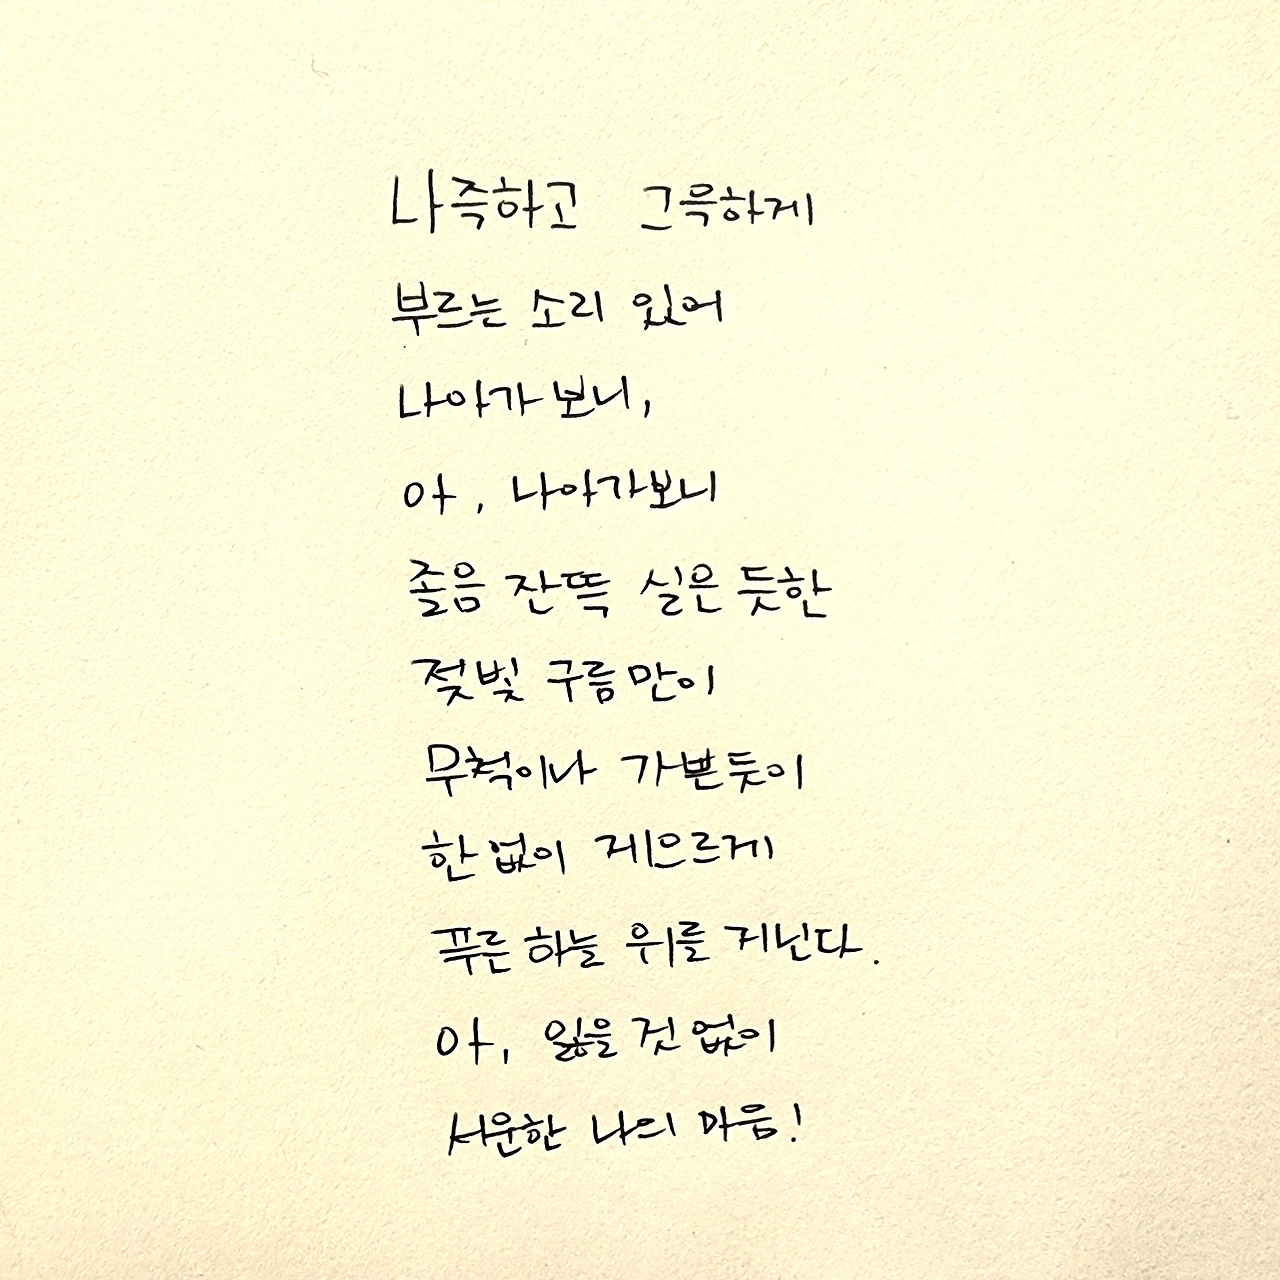 나즉하고 그윽하게
부르는 소리 있어
나아가 보니,
아, 나아가보니
졸음 잔뜩 실은 듯한
젖빛 구름만이
무척이나 가쁜듯이
한없이 게으르게
푸른 하늘 위를 거닌다.
아, 잃을 것 없이
서운한 나의 마음!